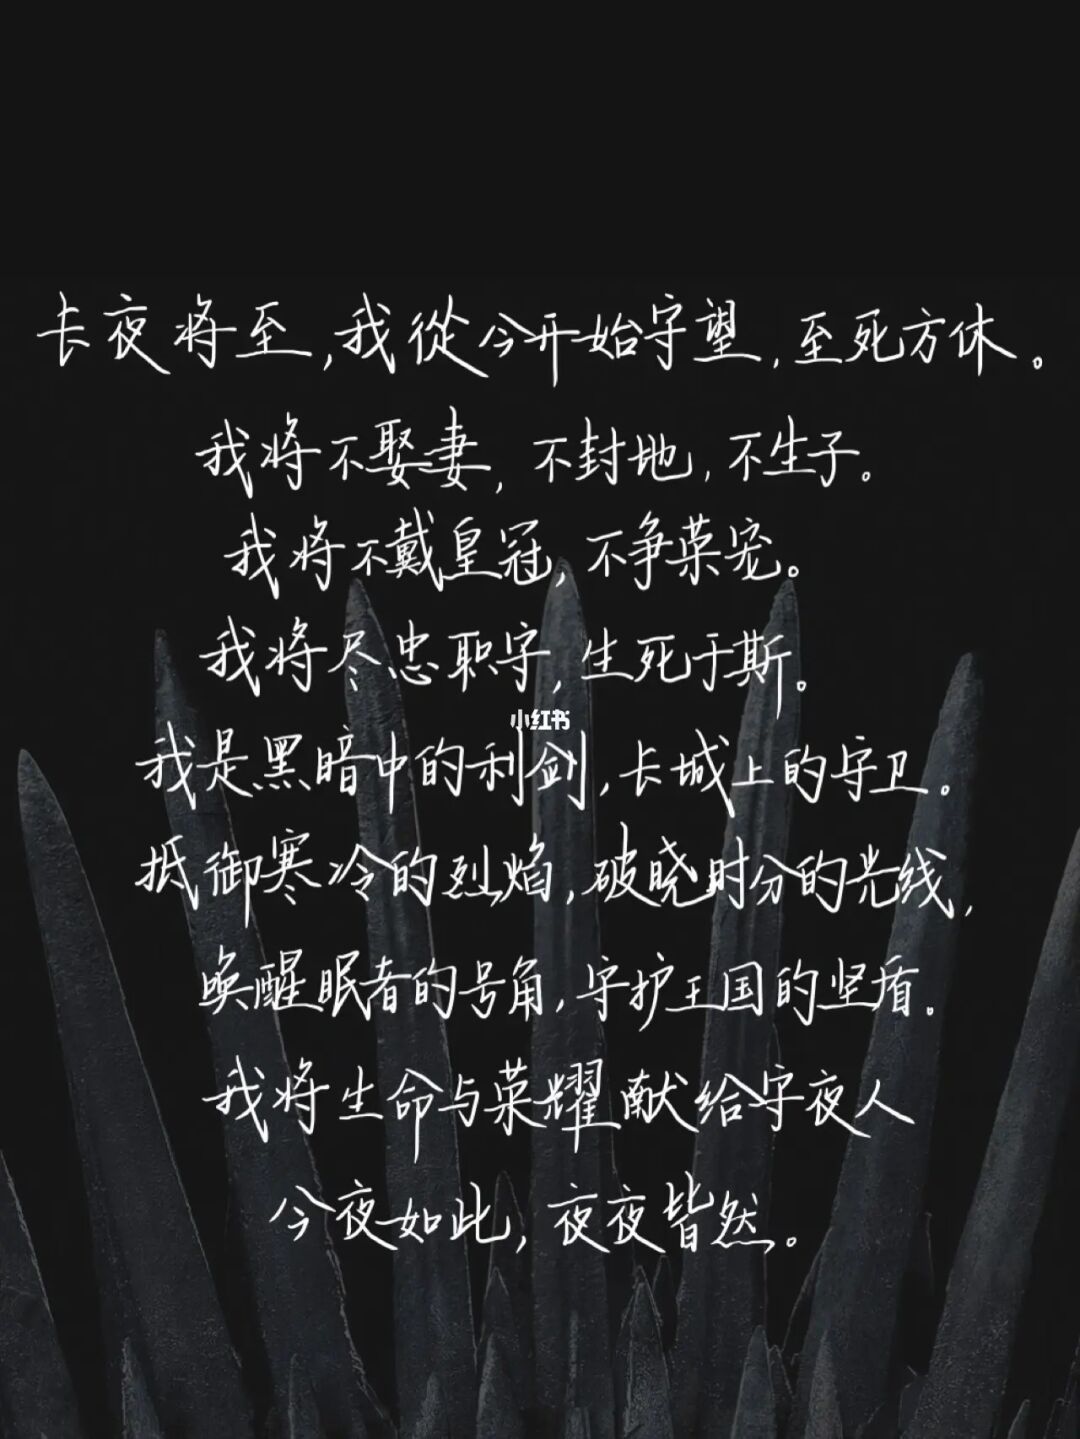 长夜将至，我從今开始守望，至死方休。
我将不娶妻，不封地，不生子。
我将不戴皇冠，不争荣宠。
我将尽忠职守，生死于斯。
小红书
我是黑暗中的利剑，长城上的守卫。
抵御寒冷的烈焰，破晓时分的光线，
唤醒眠者的号角，守护王国的坚盾。
我将生命与荣耀献给守夜人
今夜如此，夜夜皆然。